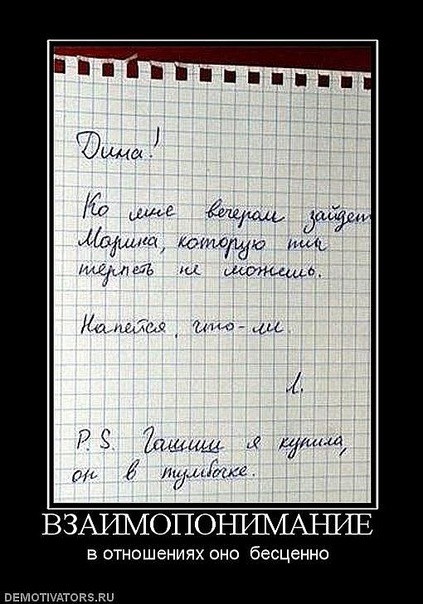 Дима!
Ко мне вечером зайдет
Марина, которую ты
терпеть не можешь.
Напейся, что-ли.
Л.
P.S. Гашиш я купила,
он в тумбочке.
ВЗАИМОПОНИМАНИЕ
в отношениях оно бесценно
DEMOTIVATORS.RU